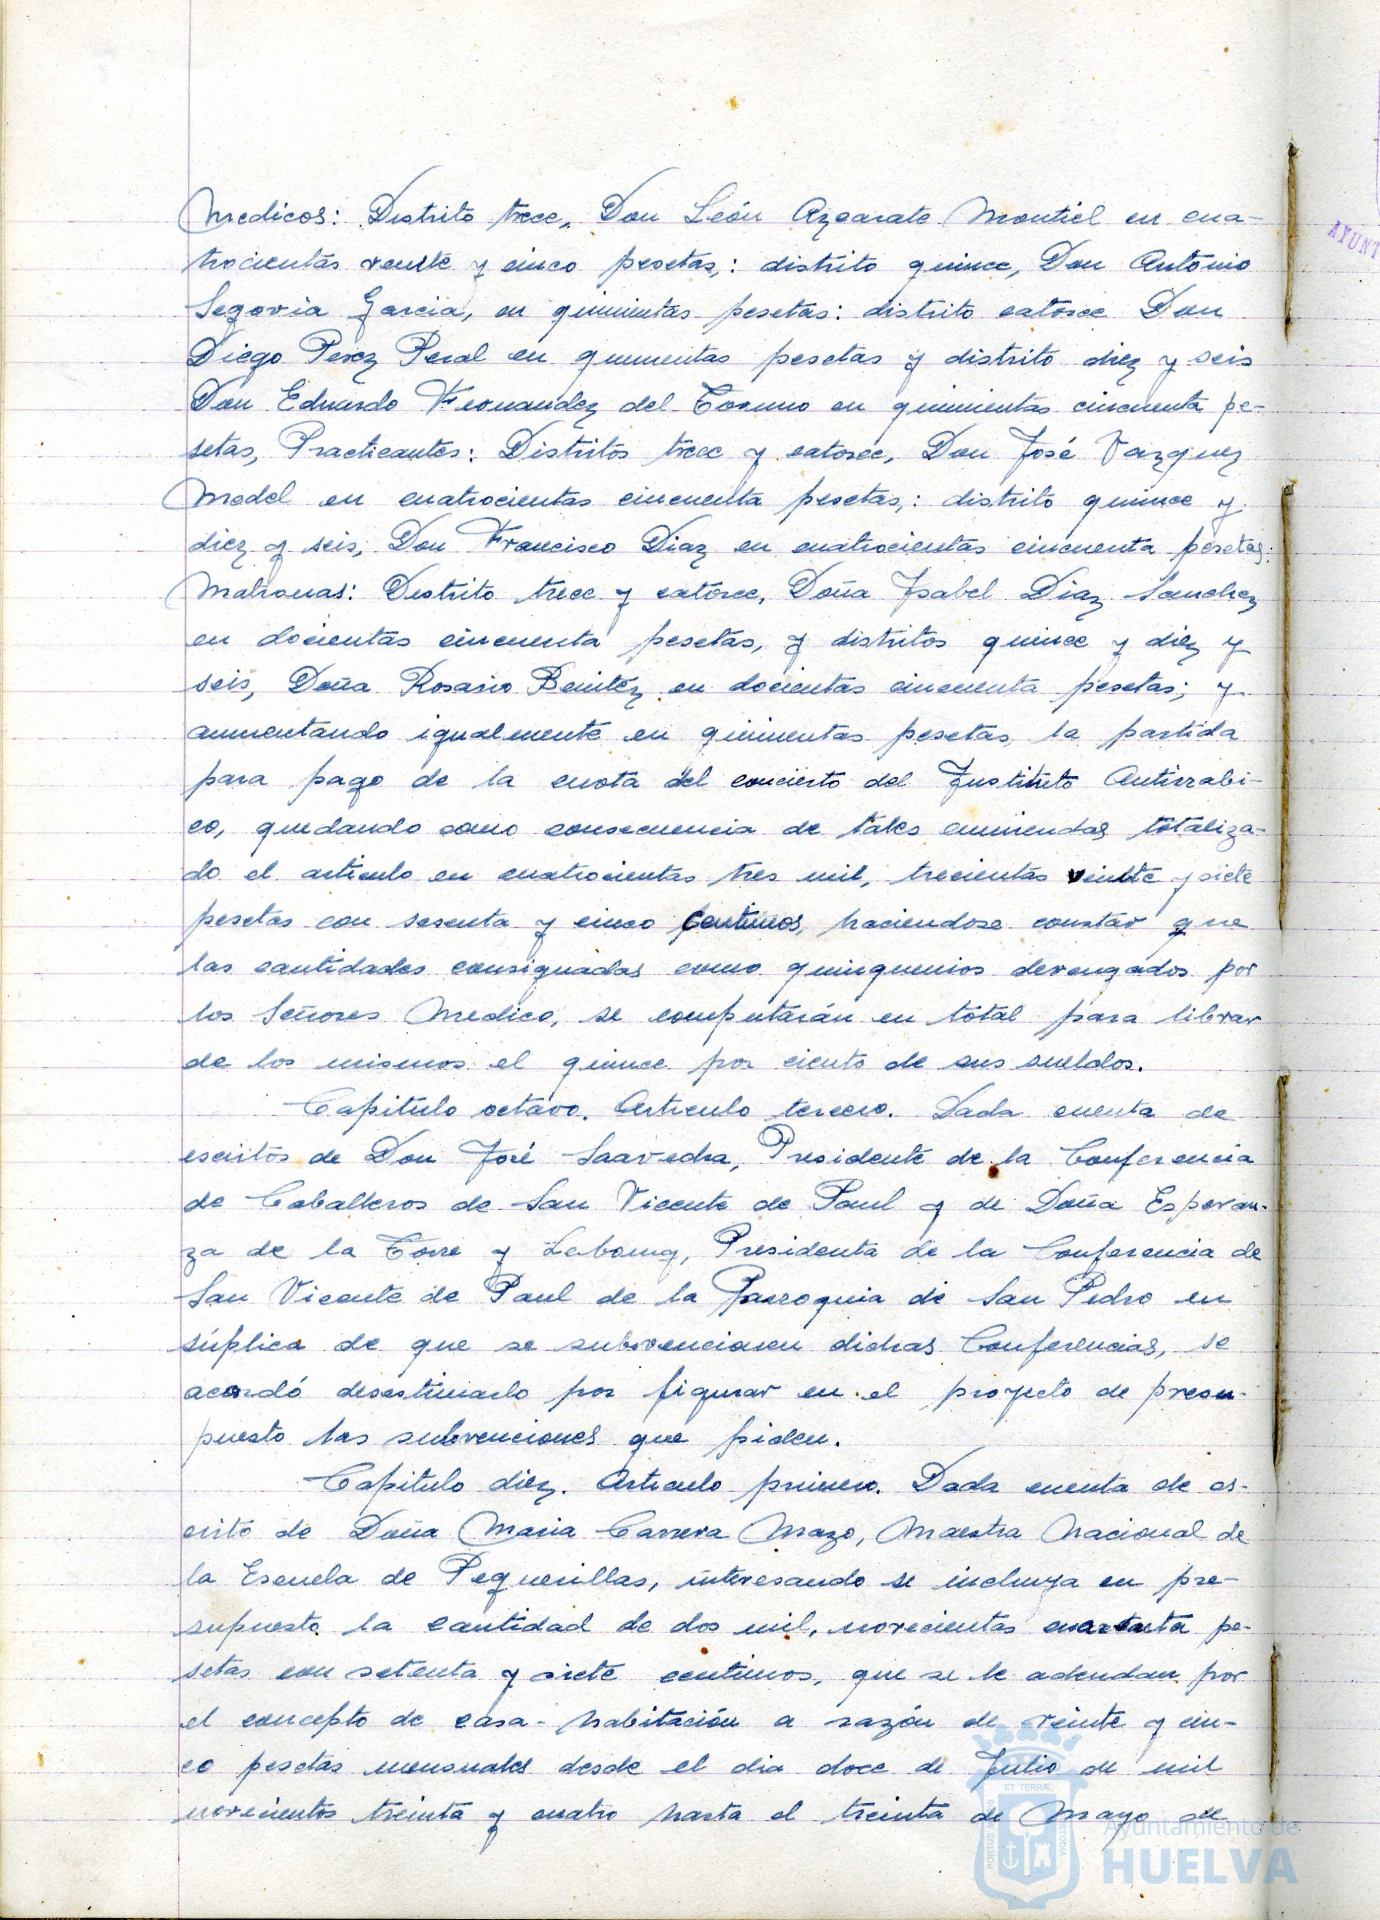 Medicos: Distrito trece, Don León Azcarate Montiel en cua-
trocientas veinte y cinco pesetas,: distrito quince, Don Antonio
Segovia Garcia, en quinientas pesetas: distrito catorce Don
Diego Perez Peral en quinientas pesetas y distrito diez y seis
Don Eduardo Fernandez del Torno en quinientas cincuenta pe-
setas, Practicantes: Distritos trece y catorce, Don José Vazquez
Medel en cuatrocientas cincuenta pesetas,: distrito quince y
diez y seis, Don Francisco Diaz en cuatrocientas cincuenta pesetas:
Matronas: Distrito trece y catorce, Doña Isabel Diaz Sanchez
en docientas cincuenta pesetas, y distritos quince y diez y
seis, Doña Rosario Benitez en docientas cincuenta pesetas; y
aumentando igualmente en quinientas pesetas la partida
para pago de la cuota del concierto del Instituto Antirrabi-
co, quedando como consecuencia de tales enmiendas totaliza-
do el articulo en cuatrocientas tres mil, trecientas veinte y siete
pesetas con sesenta y cinco centimos, haciendose constar que
las cantidades consignadas como quinquenios devengados por
los Señores Medico, se computarán en total para librar
de los mismos el quince por ciento de sus sueldos.
Capitulo octavo. Articulo tercero. Dada cuenta de
escritos de Don José Saavedra, Presidente de la Conferencia
de Caballeros de San Vicente de Paul y de Doña Esperan-
za de la Torre y Presidenta de la Conferencia de
San Vicente de Paul de la Parroquia de San Pedro en
súplica de que se subvencionen dichas Conferencias, se
acordó desestimarlo por figurar en el proyecto de presu-
puesto las subvenciones que piden.
Capitulo diez. Articulo primero. Dada cuenta de es-
crito de Doña Maria Carrera Mazo, Maestra Nacional de
la Escuela de Pequerillas, interesando se incluya en pre-
supuesto la cantidad de dos mil, novecientas cuarenta pe-
setas con setenta y siete centimos, que se le adeudan por
el concepto de casa-habitación a razón de veinte y cin-
co pesetas mensuales desde el dia doce de Julio de mil
novecientos treinta y cuatro hasta el treinta de Mayo de
AYUNT
ET TERRÆ
PORTUS
Ayuntamiento de
HUELVA